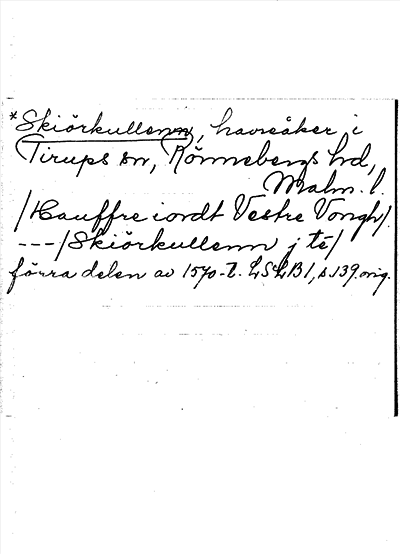 *Skiörkullenn, havreåker i
Tirups sn, Rönnebergs hd,
Malm. l.
/Hauffre iordt Vestre Vongh/
---/Skiörkullenn j té/
förra delen av 1570-t. LSLB1, s. 139 orig.